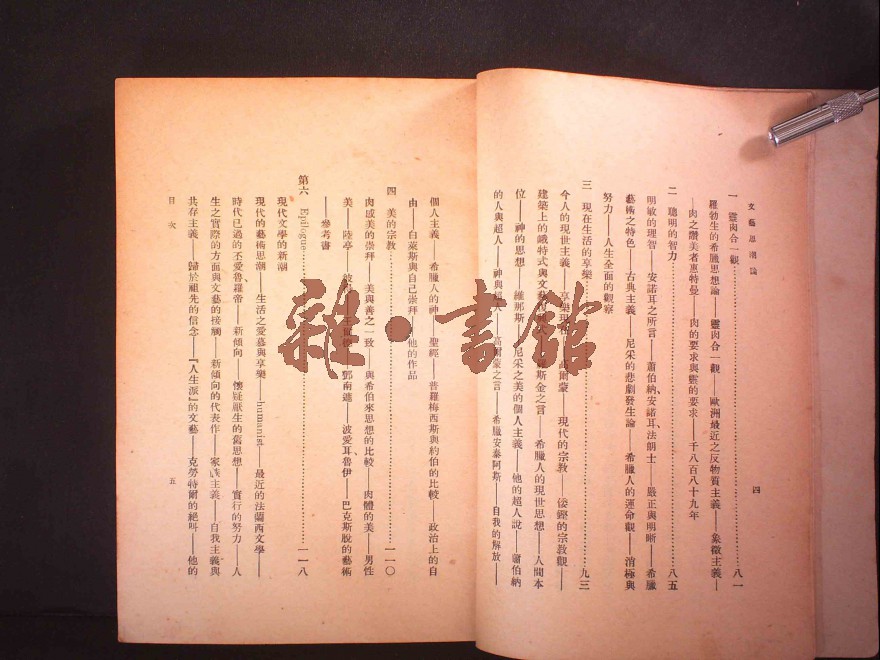 文藝思潮論
四
一 靈肉合一觀……八一
羅勃生的希臘思想論——靈肉合一觀——歐洲最近之反物質主義——象徵主義——
肉之讚美者惠特曼——肉的要求與靈的要求——千八百八十九年
二 聰明的智力……八五
明敏的理智——安諾耳之所言——蕭伯納、安諾耳、法朗士——嚴正與明晰——希臘
藝術之特色——古典主義——尼采的悲劇發生論——希臘人的運命觀——消極與
努力——人生全面的觀察
三 現在生活的享樂……九三
今人的現世主義——享樂現 爾蒙——現代的宗教——倭鏗的宗教觀——
建築上的峨特式與文藝 斯金之言——希臘人的現世思想——人間本
位——神的思想——維那斯 尼采之美的個人主義——他的超人說——蕭伯納
的人與超人——神與超人——高爾蒙之言——希臘安泰阿斯——自我的解放——
個人主義——希臘人的神——聖經——普羅梅西斯與約伯的比較——政治上的自
由——白萊斯與自己崇拜——他的作品
四 美的宗教……一一〇
肉感美的崇拜——美與善之一致——與希伯來思想的比較——肉體的美——男性
美——陸亭—— 鄧南遮——波愛耳、魯伊——巴克斯脫的藝術
——參考書
第六 Epilogue……一一八
現代文學的新潮
現代的藝術思潮——生活之愛慕與享樂——humanist——最近的法蘭西文學——
時代已過的丕愛魯、羅帝——新傾向——懷疑厭生的舊思想——實行的努力——人
生之實際的方面與文藝的接觸——新傾向的代表作——家族主義——自我主義與
共存主義——歸於祖先的信念——『人生派』的文藝——克勞特爾的絕叫——他的
目次
五
雜·書館